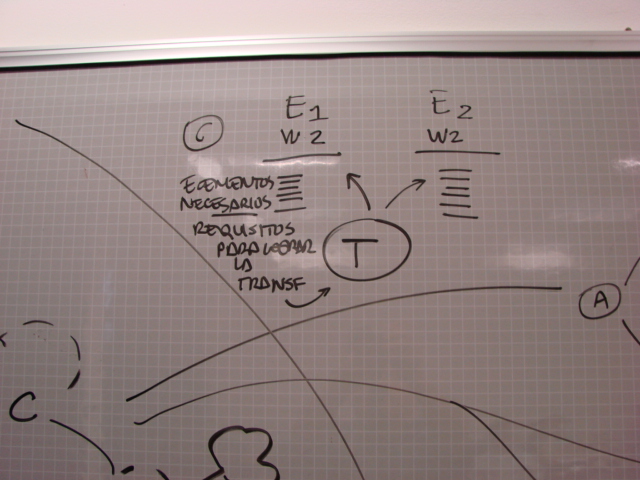 E1 E2
C W2 W2
ELEMENTOS
NECESARIOS
REQUISITOS
PARA LOGRAR
LA
TRANSF
T
A
C